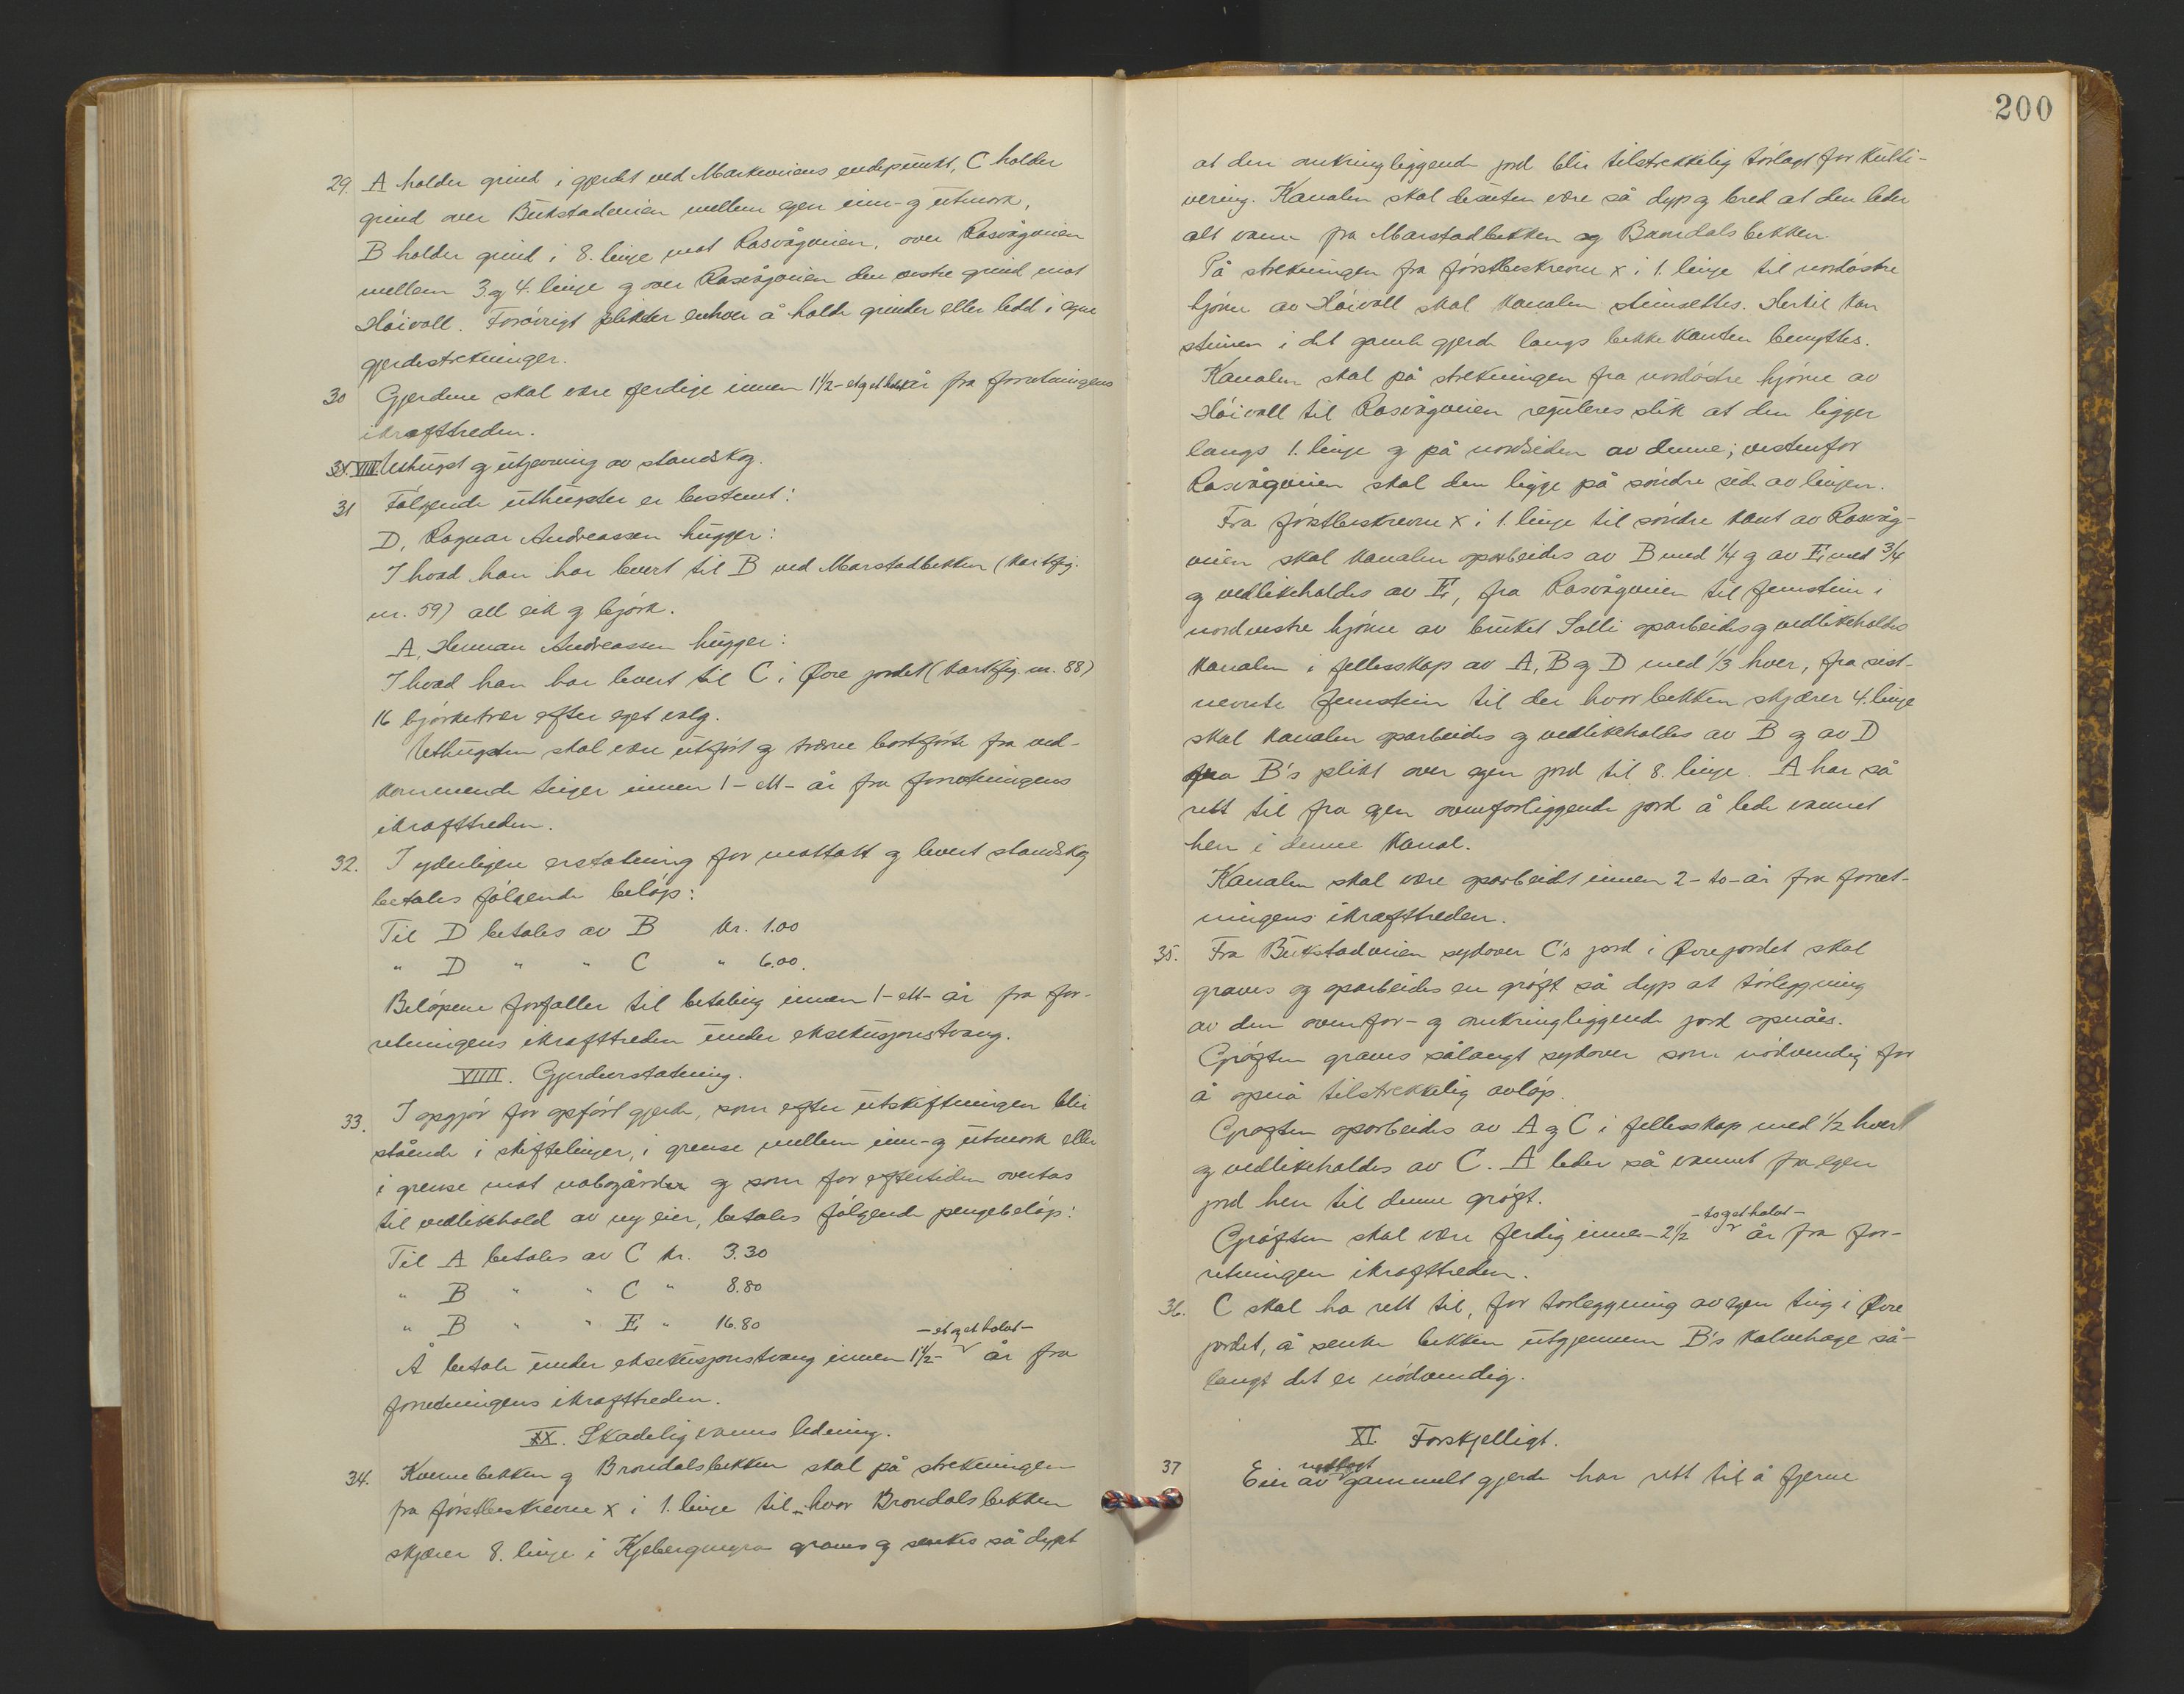 29. A holder grind i gjerdet ved Markeveiens endepunkt, C holder
grind over Bukstadveien mellem egen inn- og utmark,
B holder grind i 8. linje mot Rasvågveien, over Rasvågveien
mellem 3. og 4. linje og over Rasvågveien den vestre grind mot
Høivoll. Forøvrigt plikter enhver å holde grinder eller ledd i egne
gjerdestrekninger.
30 Gjerdene skal være ferdige innen 1½ - et og et halvt år fra forretningens
ikrafttreden.
VIII. Uthugst og utjevning av standskog.
31 Følgende uthugster er bestemt:
D, Ragnar Andreassen hugger:
I hvad han har levert til B ved Marstadbekken (kartfig.
nr. 59) all eik og bjørk.
A, Herman Andreassen hugger:
I hvad han har levert til C i Øvre jordet (kartfig. nr. 88)
16 bjørketrær efter eget valg.
Uthugsten skal være utført og trærne bortførte fra ved-
kommende teiger innen 1 - ett - år fra forretningens
ikrafttreden.
32. I yderligere erstatning for mottatt og levert standskog
betales følgende beløp:
Til D betales av B kr. 1.00
" D " " C " 6.00.
Beløpene forfaller til betaling innen 1 - ett - år fra for-
retningens ikrafttreden under eksekusjonstvang.
VIIII. Gjerdeerstatning.
33. I opgjør for opført gjerde, som efter utskiftningen blir
stående i skiftelinjer, i grense mellem inn- og utmark eller
i grense mot nabogårder og som for eftertiden overtas
til vedlikehold av ny eier, betales følgende pengebeløp:
Til A betales av C kr. 3.30
" B " " C " 8.80
" B " " E " 16.80
- et og et halvt -
Å betale under eksekusjonstvang innen 1½ - år fra
forretningens ikrafttreden.
XX. Skadelig vanns ledning.
34. Kvernebekken og Brondalsbekken skal på strekningen
fra førstbeskrevne x i 1. linje til hvor Brondalsbekken
skjærer 8. linje i Kjebergmyra graves og senkes så dypt
200
at den omkringliggende jord blir tilstrekkelig tørlagt for kulti-
vering. Kanalen skal desuten være så dyp og bred at den leder
alt vann fra Marstadbekken og Brondalsbekken.
På strekningen fra førstbeskrevne x i 1. linje til nordøstre
hjørne av Høivoll skal kanalen steinsettes. Hertil kan
steinen i det gamle gjerde langs bekkekanten benyttes.
Kanalen skal på strekningen fra nordøstre hjørne av
Høivoll til Rasvågveien reguleres slik at den ligger
langs 1. linje og på nordsiden av denne; vestenfor
Rasvågveien skal den ligge på søndre side av linjen.
Fra førstbeskrevne x i 1. linje til søndre kant av Rasvåg-
veien skal kanalen oparbeides av B med ¼ og av E med ¾
og vedlikeholdes av E, fra Rasvågveien til jernstein i
nordvestre hjørne av bruket Solli oparbeides og vedlikeholdes
kanalen i fellesskap av A, B og D med ⅓ hver, fra sist-
nevnte jernstein til der hvor bekken skjærer 4. linje
skal kanalen oparbeides og vedlikeholdes av B og av D
fra B's plikt over egen jord til 8. linje. A har så
rett til fra egen ovenforliggende jord å lede vannet
hen i denne kanal.
Kanalen skal være oparbeidt innen 2 - to - år fra forret-
ningens ikrafttreden.
35. Fra Bukstadveien sydover C's jord i Øvrejordet skal
graves og oparbeides en grøft så dyp at tørlegging
av den ovenfor- og omkringliggende jord opnåes.
Grøften graves sålangt sydover som nødvendig for
å opnå tilstrekkelig avløp.
Grøften oparbeides av A og C i fellesskap med ½ hver
og vedlikeholdes av C. A leder så vannet fra egen
jord hen til denne grøft.
- to og et halvt -
Grøften skal være ferdig innen 2½ år fra for-
retningen ikrafttreden.
36. C skal ha rett til, for tørleggning av egen teig i Øvre
jordet, å senke bekken utgjennem B's kalvehage så-
langt det er nødvendig.
XI. Forskjelligt.
nedlagt
37 Eier av gammelt gjerde har rett til å fjerne